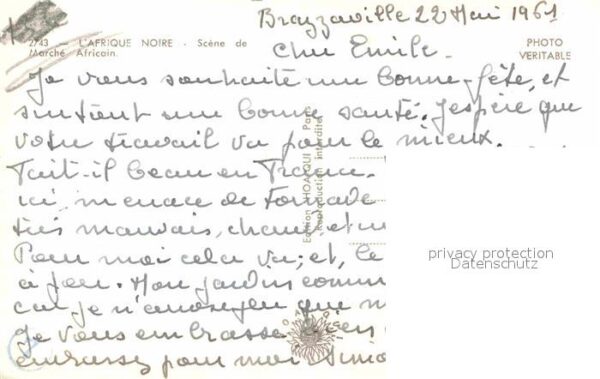 Brazzaville 22 Mai 1961
2743 — L'AFRIQUE NOIRE - Scène de
Marché Africain.
PHOTO
VERITABLE
Cher Emile.
Je vous souhaite une bonne fête, et
surtout une bonne santé. J'espère que
votre travail va pour le mieux.
Fait-il beau en France.
ici, menace de Tornade
très mauvais, chaud, et
Pour moi cela va; et, le
à jour. Mon jardin comm
car je n'
que
Je vous embrasse
embrassez pour moi
Edition HOA-QUI Paris
Reproduction interdite
privacy protection
Datenschutz